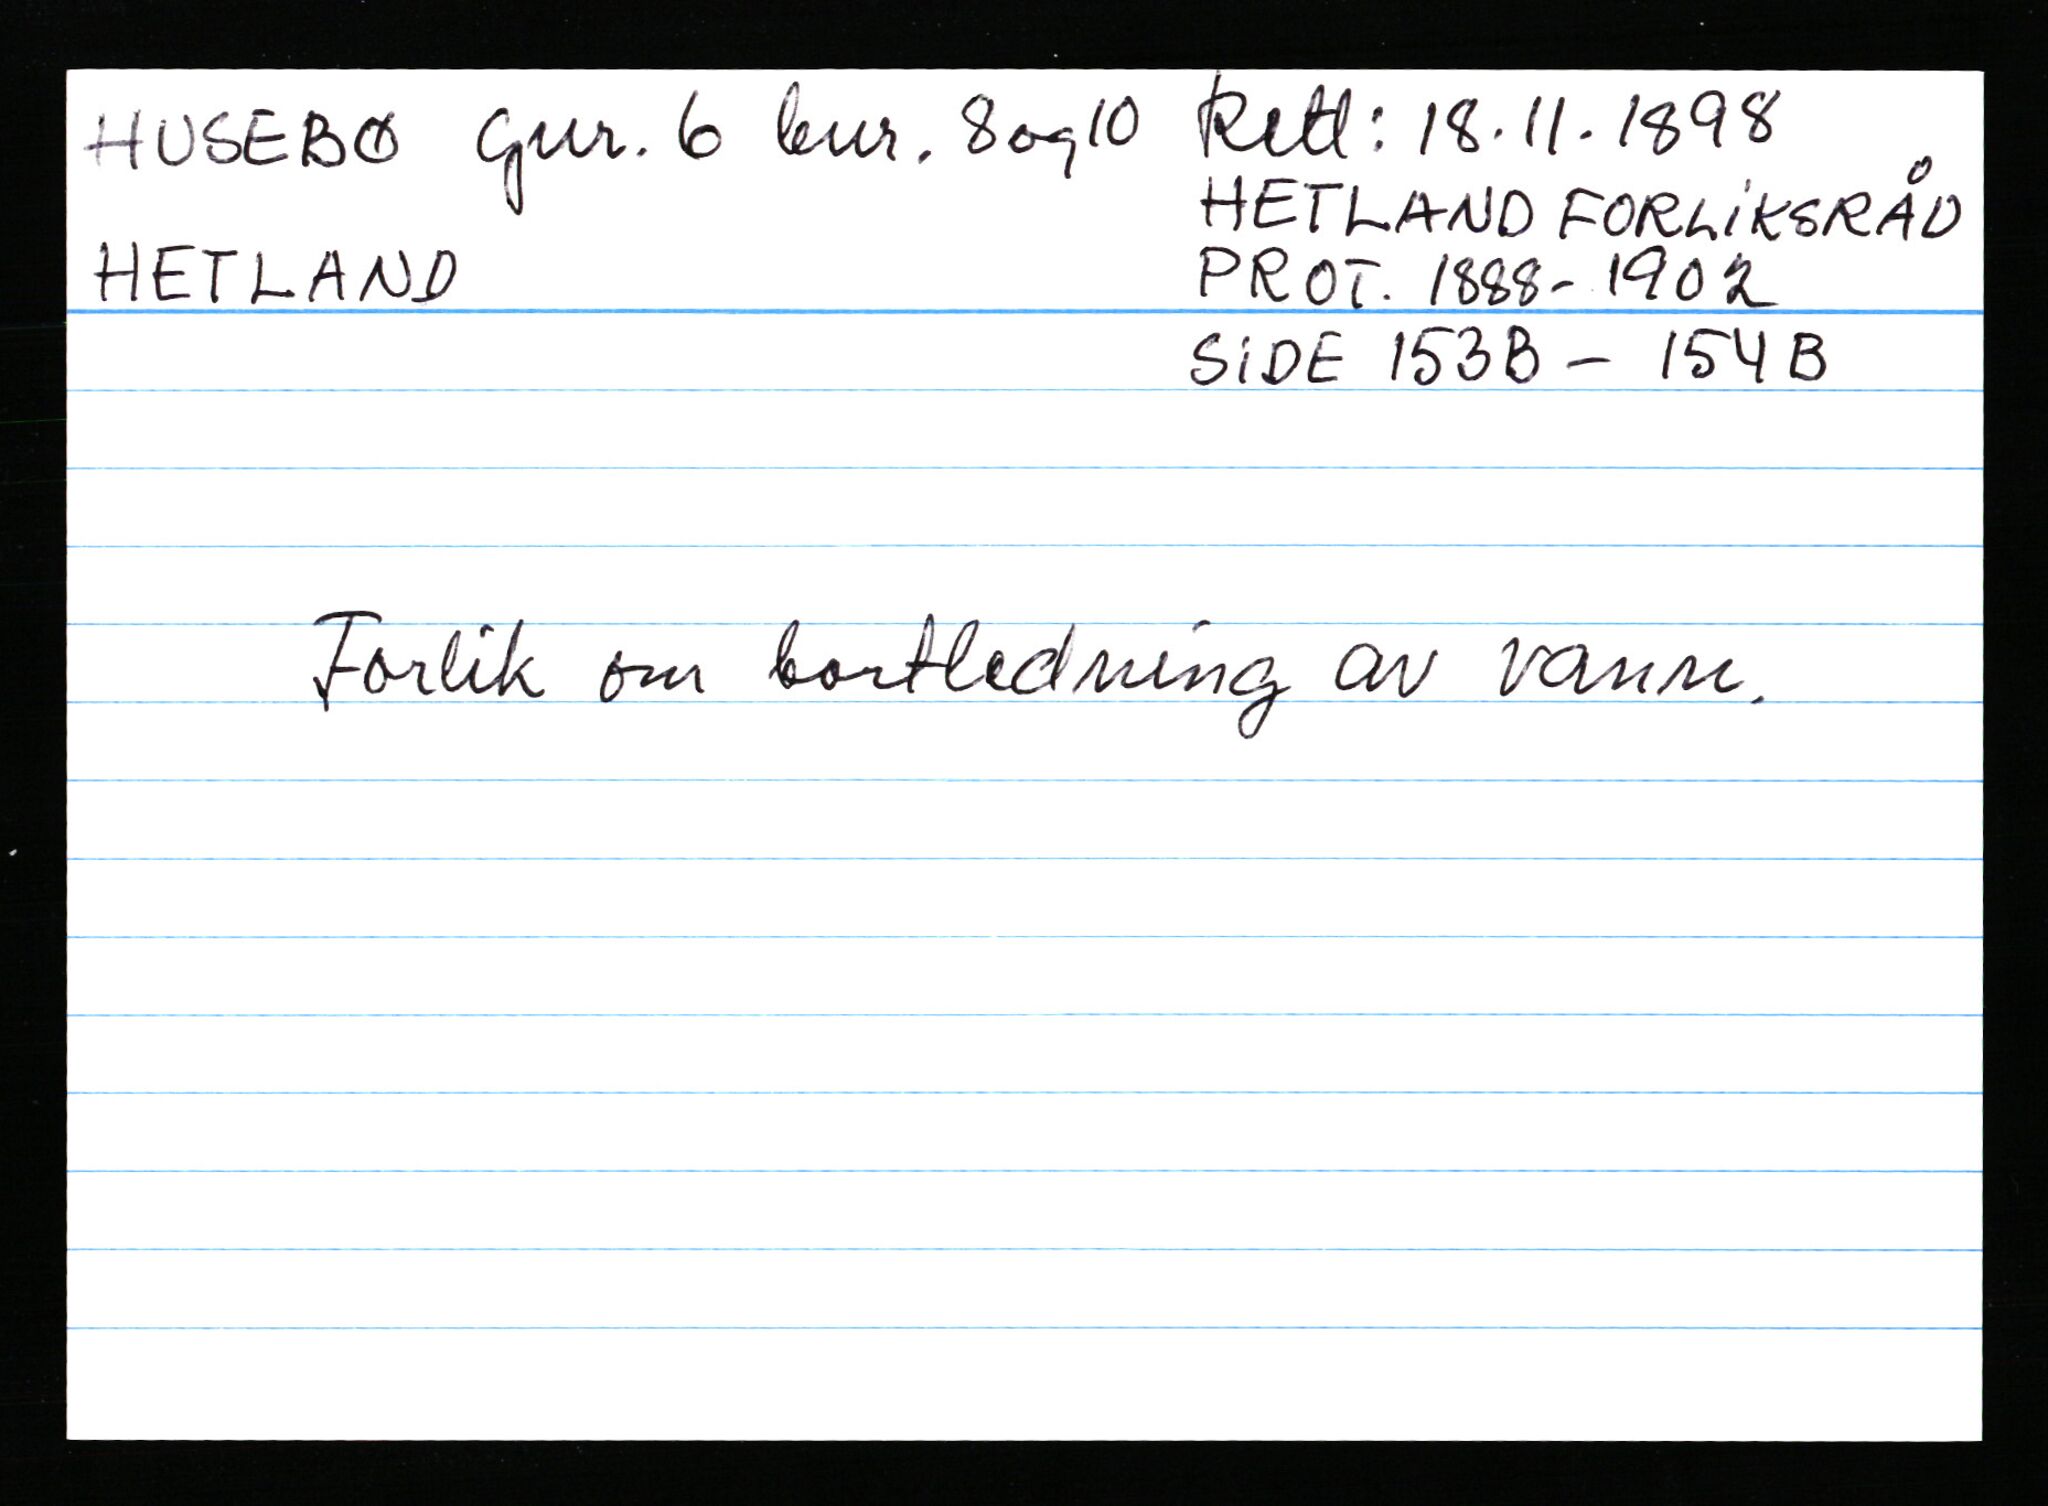 HUSEBØ Gnr. 6 bnr. 8 og 10 Rettl: 18.11.1898
HETLAND FORLIKSRÅD
HETLAND PROT. 1888-1902
SIDE 153B - 154B
Forlik om bortledning av vann.